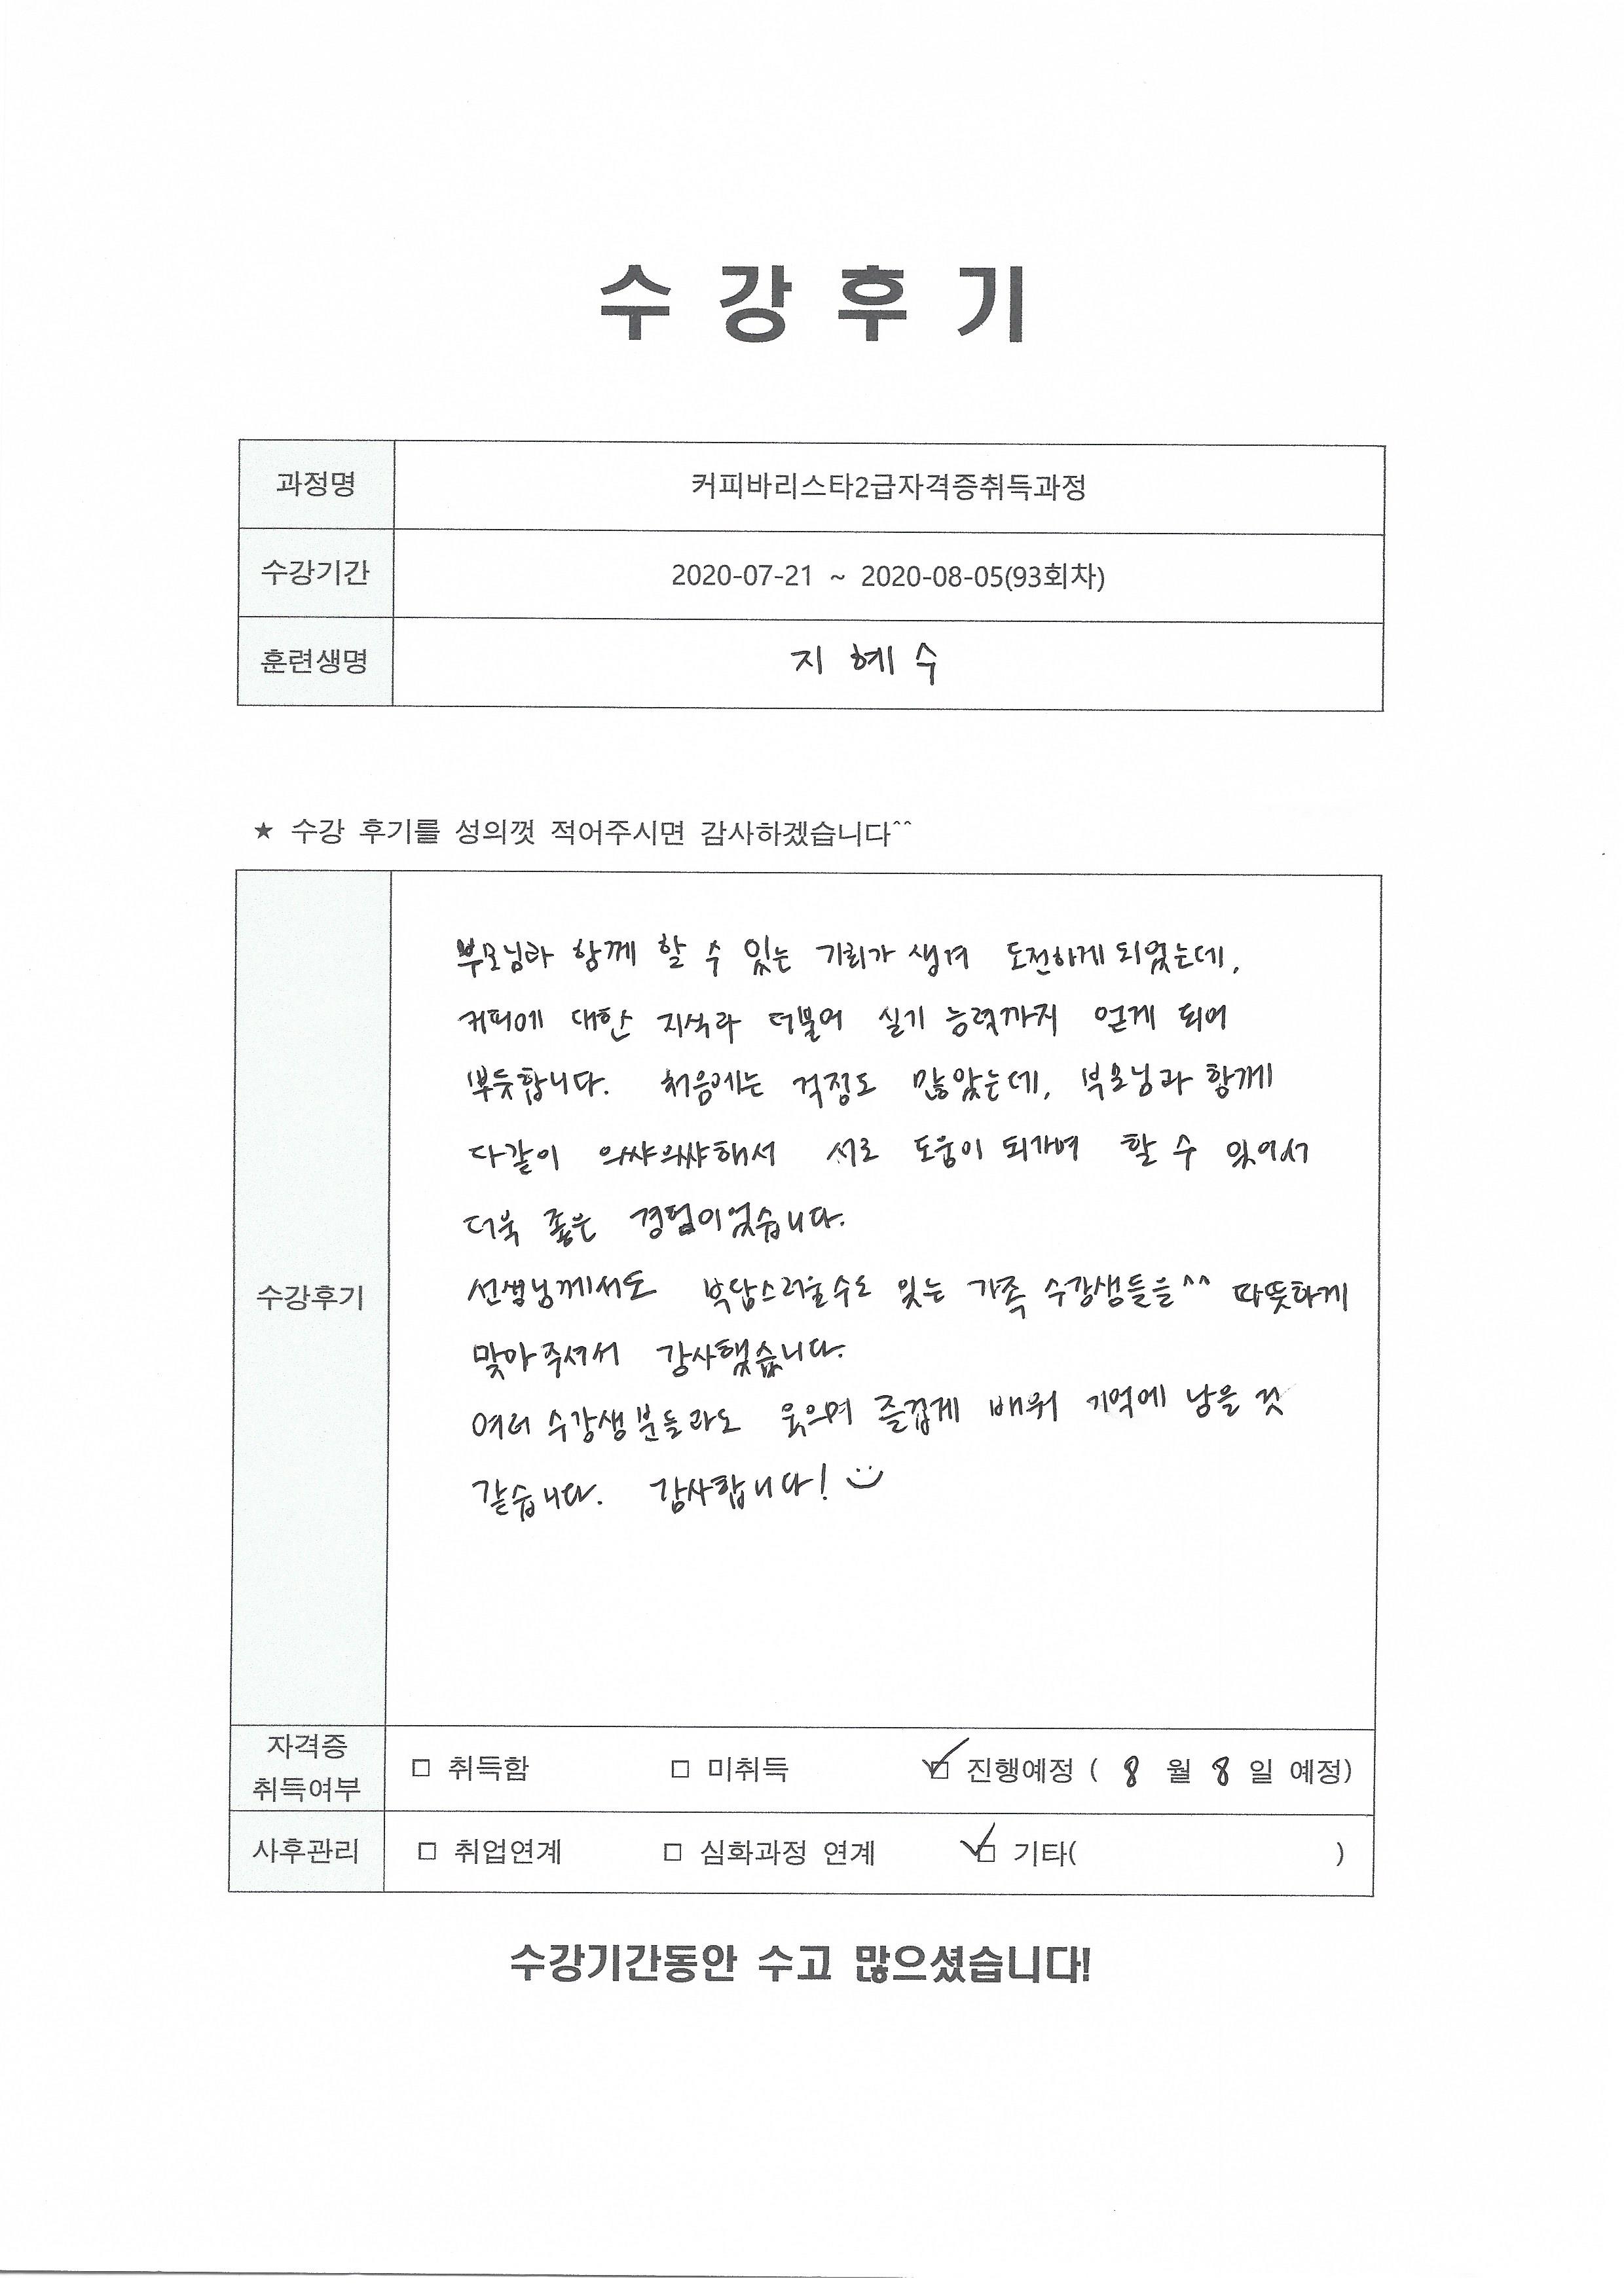 수 강 후 기
과정명 커피바리스타2급자격증취득과정
수강기간 2020-07-21 ~ 2020-08-05(93회차)
훈련생명 지 혜 수
★ 수강 후기를 성의껏 적어주시면 감사하겠습니다^^
부모님과 함께 할 수 있는 기회가 생겨 도전하게 되었는데,
커피에 대한 지식과 더불어 실기 능력까지 얻게 되어
뿌듯합니다. 처음에는 걱정도 많았는데, 부모님과 함께
다같이 으쌰으쌰해서 서로 도움이 되가며 할 수 있어서
더욱 좋은 경험이었습니다.
수강후기
선생님께서도 부담스러울수도 있는 가족 수강생들을^^ 따뜻하게
맞아주셔서 감사했습니다.
여러 수강생분들과도 웃으며 즐겁게 배워 기억에 남을 것
같습니다. 감사합니다! :)
자격증
취득여부 □ 취득함 □ 미취득 ☑ 진행예정 ( 8 월 8 일 예정)
사후관리 □ 취업연계 □ 심화과정 연계 ☑ 기타( )
수강기간동안 수고 많으셨습니다!